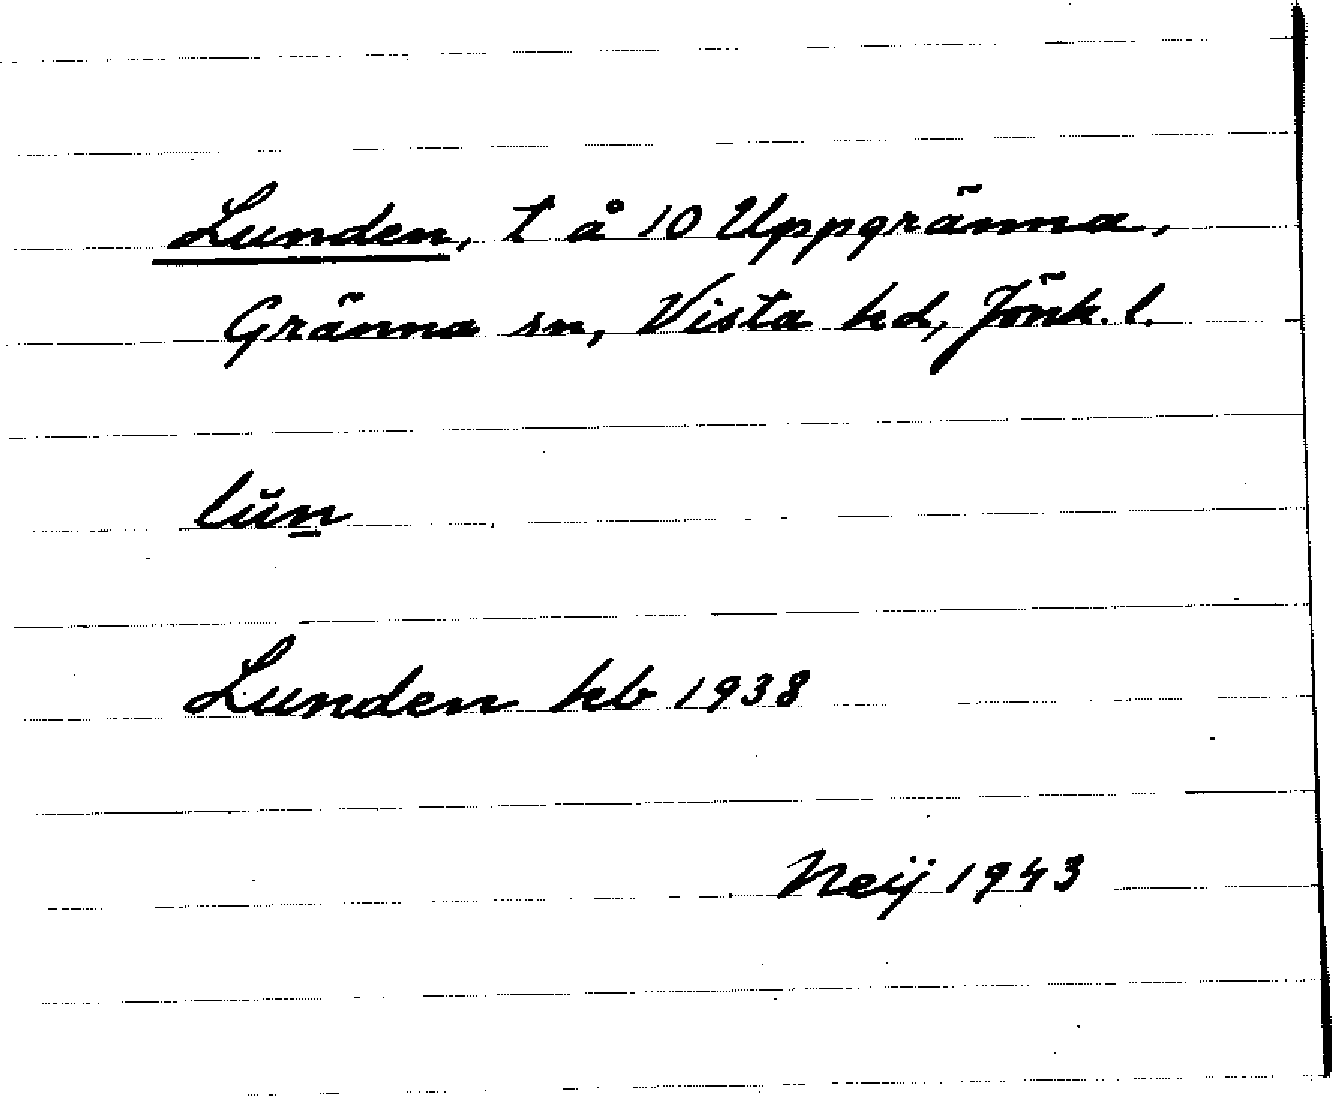 Lunden, t å 10 Uppgränna,
Gränna sn, Vista hd, Jönk. l.
lŭn̲
Lunden kb 1938
Neij 1943